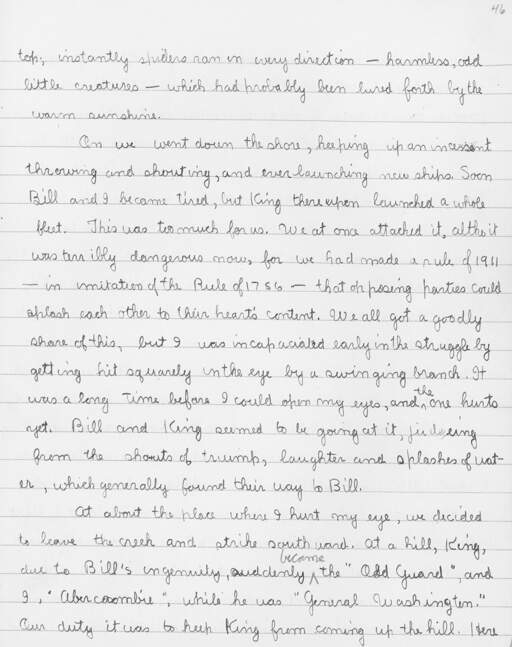 46
top; instantly spiders ran in every direction — harmless, odd
little creatures — which had probably been lured forth by the
warm sunshine.
On we went down the shore, keeping up an incessant
throwing and shouting, and ever launching new ships. Soon
Bill and I became tired, but King thereupon launched a whole
fleet. This was too much for us. We at once attacked it, altho it
was terribly dangerous now, for we had made a rule of 1911
— in imitation of the Rule of 1756 — that opposing parties could
splash each other to their heart's content. We all got a goodly
share of this, but I was incapaciated early in the struggle by
getting hit squarely in the eye by a swinging branch. It
was a long time before I could open my eyes, and the one hurts
yet. Bill and King seemed to be going at it, judging
from the shouts of triump, laughter and splashes of wat-
er, which generally found their way to Bill.
At about the place where I hurt my eye, we decided
to leave the creek and strike southward. At a hill, King,
due to Bill's ingenuity, suddenly become the "Old Guard", and
I, "Abercrombie", while he was "General Washington."
Our duty it was to keep King from coming up the hill. Here